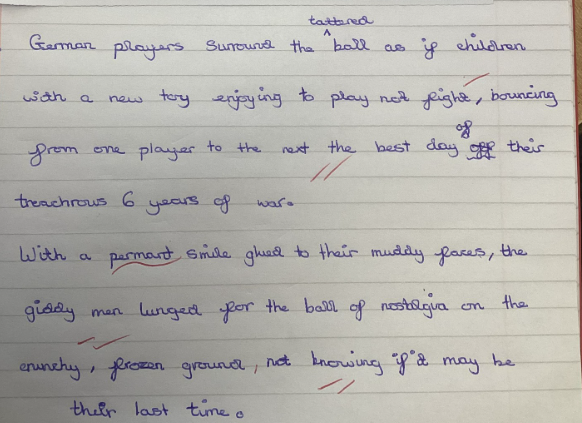 German players surround the tattered ball as if children
with a new toy enjoying to play not fight, bouncing
from one player to the next the best day of their
treachrous 6 years of war.
With a permant smile glued to their muddy faces, the
giddy men lunged for the ball of nostalgia on the
crunchy, frozen ground, not knowing if it may be
their last time.